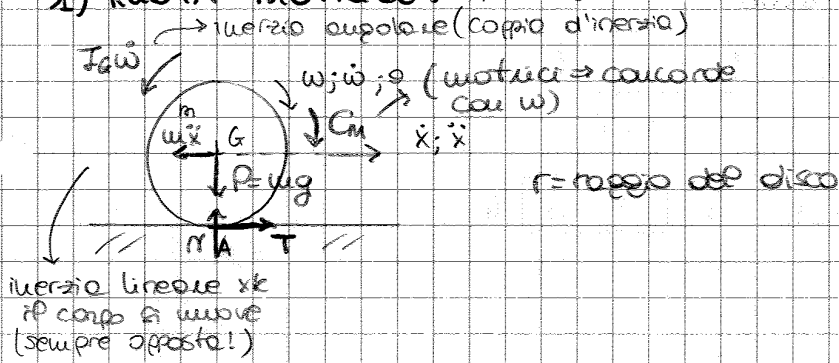 1) RUOTA MOTRICE:
→ inerzia angolare (coppia d'inerzia)
J_G ω̇
ω; ω̇; θ (motrici ⇒ concorde
con ω)
C_M
m
mẍ
G
ẋ; ẍ
P=mg
r=raggio del disco
N
A
T
inerzia lineare xk
il corpo si muove
(sempre opposta!)